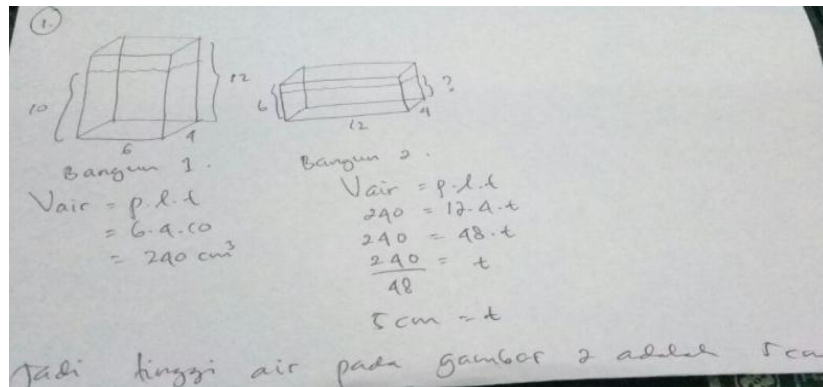 1.
10
12
6
4
6
?
12
4
Bangun 1.
Vair = p.l.t
= 6.4.10
= 240 cm³
Bangun 2.
Vair = p.l.t
240 = 12.4.t
240 = 48.t
240 = t
48
5 cm = t
Jadi tinggi air pada gambar 2 adalah 5 cm